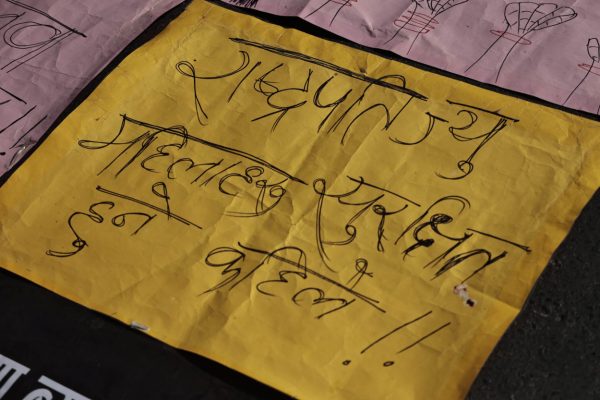 राष्ट्रपति ज्यु
महिलाहरु सुरक्षित
हुने कहिले !!